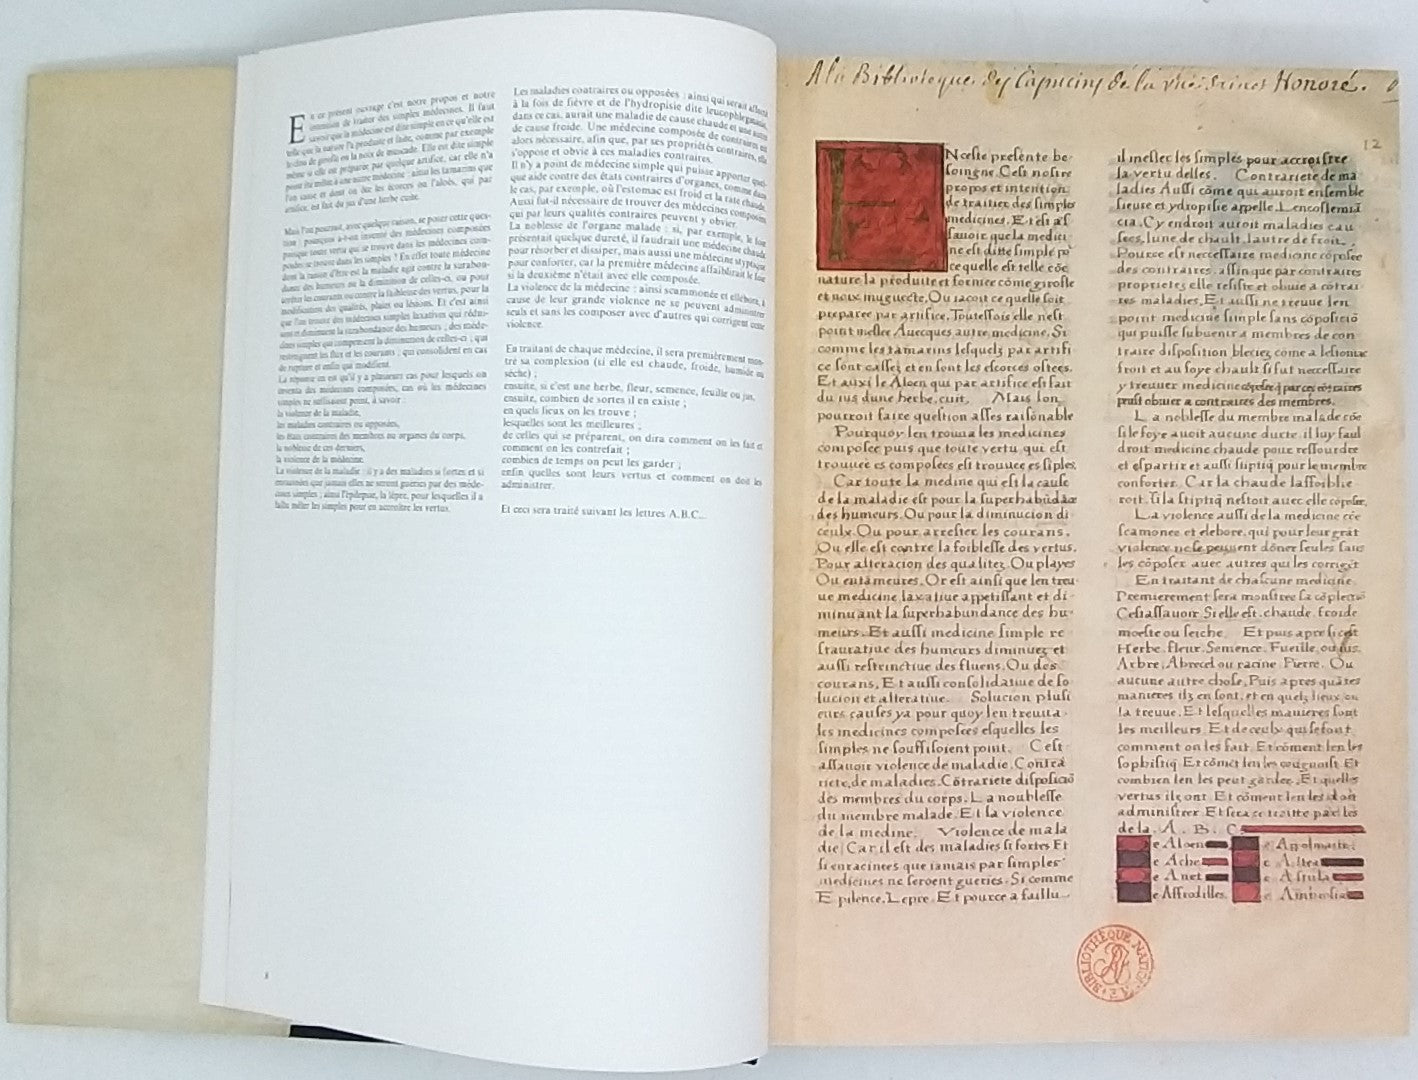 En ce présent ouvrage c'est notre propos et notre
intention de traiter des simples médecines. Il faut
savoir que la médecine est dite simple en ce qu'elle est
telle que la nature l'a produite et faite, comme par exemple
le clou de girofle ou la noix de muscade. Elle est dite simple
même si elle est préparée par quelque artifice, car elle n'a
point été mêlée à une autre médecine : ainsi les tamarins que
l'on casse et dont on ôte les écorces ou l'aloès, qui par
artifice, est fait du jus d'une herbe cuite.
Mais l'on pourrait, avec quelque raison, se poser cette ques-
tion : pourquoi a-t-on inventé des médecines composées
puisque toute vertu qui se trouve dans les médecines com-
posées se trouve dans les simples ? En effet toute médecine
dont la raison d'être est la maladie agit contre la surabon-
dance des humeurs ou la diminution de celles-ci, ou pour
arrêter les courants ou contre la faiblesse des vertus, pour la
modification des qualités, plaies ou lésions. Et c'est ainsi
que l'on trouve des médecines simples laxatives qui rédui-
sent et diminuent la surabondance des humeurs ; des méde-
cines simples qui compensent la diminution de celles-ci ; qui
restreignent les flux et les courants ; qui consolident en cas
de rupture et enfin qui modifient.
La réponse en est qu'il y a plusieurs cas pour lesquels on
inventa des médecines composées, cas où les médecines
simples ne suffisaient point, à savoir :
la violence de la maladie,
les maladies contraires ou opposées,
les états contraires des membres ou organes du corps,
la noblesse de ces derniers,
la violence de la médecine.
La violence de la maladie : il y a des maladies si fortes et si
enracinées que jamais elles ne seront guéries par des méde-
cines simples ; ainsi l'épilepsie, la lèpre, pour lesquelles il a
fallu mêler les simples pour en accroître les vertus.
Les maladies contraires ou opposées ; ainsi qui serait affecté
à la fois de fièvre et de l'hydropisie dite leucophlegmatie,
dans ce cas, aurait une maladie de cause chaude et une autre
de cause froide. Une médecine composée de contraires est
alors nécessaire, afin que, par ses propriétés contraires, elle
s'oppose et obvie à ces maladies contraires.
Il n'y a point de médecine simple qui puisse apporter quel-
que aide contre des états contraires d'organes, comme dans
le cas, par exemple, où l'estomac est froid et la rate chaude.
Aussi fut-il nécessaire de trouver des médecines composées
qui par leurs qualités contraires peuvent y obvier.
La noblesse de l'organe malade : si, par exemple, le foie
présentait quelque dureté, il faudrait une médecine chaude
pour résorber et dissiper, mais aussi une médecine styptique
pour conforter, car la première médecine affaiblirait le foie
si la deuxième n'était avec elle composée.
La violence de la médecine : ainsi scammonée et ellébore, à
cause de leur grande violence ne se peuvent administrer
seuls et sans les composer avec d'autres qui corrigent cette
violence.
En traitant de chaque médecine, il sera premièrement mon-
tré sa complexion (si elle est chaude, froide, humide ou
sèche) ;
ensuite, si c'est une herbe, fleur, semence, feuille ou jus,
ensuite, combien de sortes il en existe ;
en quels lieux on les trouve ;
lesquelles sont les meilleures ;
de celles qui se préparent, on dira comment on les fait et
comment on les contrefait ;
combien de temps on peut les garder ;
enfin quelles sont leurs vertus et comment on doit les
administrer.
Et ceci sera traité suivant les lettres A.B.C...
8
A la Biblioteque des Capucins de la rue Sainct Honoré.
12
E Nceste presente be-
soingne. Cest nostre
propos et intention
de traitier des simples
medicines. Et est as
sauoir que la medici
ne est ditte simple po᷑
ce quelle est telle cōe
nature la produite et formee cōme girofle
et noix muguecte, Ou jacoit ce quelle soit
preparee par artifice. Touteffois elle nest
point meslee Auecques autre medicine. Si
comme les tamarins lesquelz par artifi
ce sont cassez et en sont les escorces ostees.
Et auxi le Aloen qui par artifice est fait
du ius dune herbe cuit. Mais lon
pourroit faire question asses raisonable
Pourquoy len trouua les medicines
composee puis que toute vertu qui est
trouuee es composees est trouuee es sīples.
Car toute la medine qui est la cause
de la maladie est pour la superhabūdāce
des humeurs. Ou pour la diminucion di
ceulx. Ou pour arrester les courans.
Ou elle est contre la foiblesse des vertus.
Pour alteracion des qualitez. Ou playes
Ou entameures. Or est ainsi que len treu-
ue medicine laxatiue appetissant et di-
minuant la superhabundance des hu-
meurs. Et aussi medicine simple re
stauratiue des humeurs diminuez et
aussi restrinctiue des fluens. Ou des
courans. Et aussi consolidatiue de so
lucion et alteratiue. Solucion plusi
eurs causes ya pour quoy len treuua
les medicines composees esquelles les
simples ne souffisoient point. Cest
assauoir violence de maladie. Contra
riete de maladies. Cōtrariete disposiciō
des membres du corps. La noublesse
du membre malade. Et la violence
de la medine. Violence de mala
die Car il est des maladies si fortes Et
si enracinees que iamais par simples
medicines ne seroent gueries. Si comme
Epilence. Lepre. Et pource a faillu
il mesler les simples pour accroistre
la vertu delles. Contrariete de ma
ladies Aussi cōme qui auroit ensemble
fieure et ydropisie appelle
cia. Cy endroit auroit maladies cau
sees, lune de chault. lautre de froit.
Pource est neccessaire medicine cōposee
des contraires. affin que par contraires
proprietes elle resiste et obuie a cōtrai
res maladies. Et aussi ne treuue len
point medicine simple sans cōposiciō
qui puisse subuenir a membres de con
traire disposition bleciez come a lestomac
froit et au foye chault si fut neccessaire
y treuuer medicine cōposee q̄ par ces cōtraires
peust obuier a contraires des membres.
La noblesse du membre malade cōe
si le foye auoit aucune durte. il luy faul
droit medicine chaude pour ressourdre
et espartir et aussi stiptiq̄ pour le membre
conforter. Car la chaude laffoiblie
roit. Si la stiptiq̄ nestoit auec elle cōposee.
La violence aussi de la medicine cōe
scamonee et elebore, qui pour leur grāt
violence ne se peuuent dōner seules sans
les cōposer auec autres qui les corrigēt
En traitant de chascune medicine
Premierement sera monstree sa cōplexiō
Cestassauoir Si elle est. chaude. froide
moeste ou seiche. Et puis apres si cest
Herbe. fleur. Semence. Fueille, ou ius.
Arbre, Abrecel ou racine Pierre. Ou
aucune autre chose. Puis apres quātes
manieres ilz en sont, et en quelz lieux on
la treuue. Et lesquelles manieres sont
les meilleurs. Et de ceulx qui se font
comment on les fait. Et cōment len les
sophistiq̄ Et cōmēt len les cōgnoist. Et
combien len les peut garder. Et quelles
vertus ilz ont. Et cōment len les doit
administrer. Et sera ce traitte par les
de la. A. B. C
e Aloen
e Ache
e Anet
e Affrodilles.
BIBLIOTHÈQUE NATION